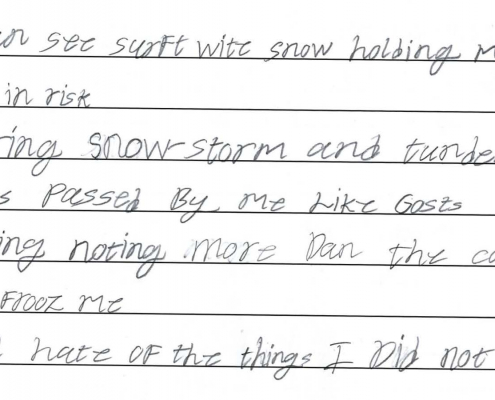 see surft wite snow holding
in risk
ring snow-storm and tunde
s Passed By me Like Gosts
ing noting more Dan the
Frooz me
hate of the things I Did not